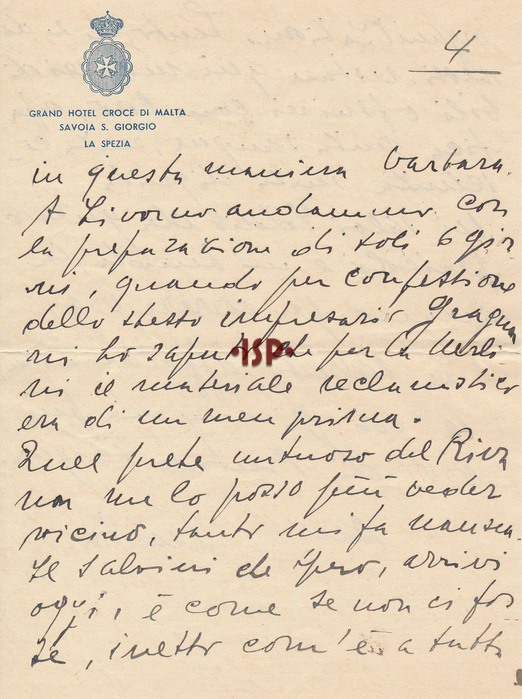 4
GRAND HOTEL CROCE DI MALTA
SAVOIA S. GIORGIO
LA SPEZIA
in questa maniera barbara.
A Livorno andammo con
la preparazione di soli 6 gior
ni, quando per confessione
dello stesso impresario Gragna
ni ho saputo che per la Merli
ni il materiale reclamistico
era di un mese prima.
Quel prete virtuoso del Riva
non me lo posso più veder
vicino, tanto mi fa nausea.
Se Salvini che spero, arrivi
oggi, è come se non ci fos
se, inetto com'è a tutto
ISP